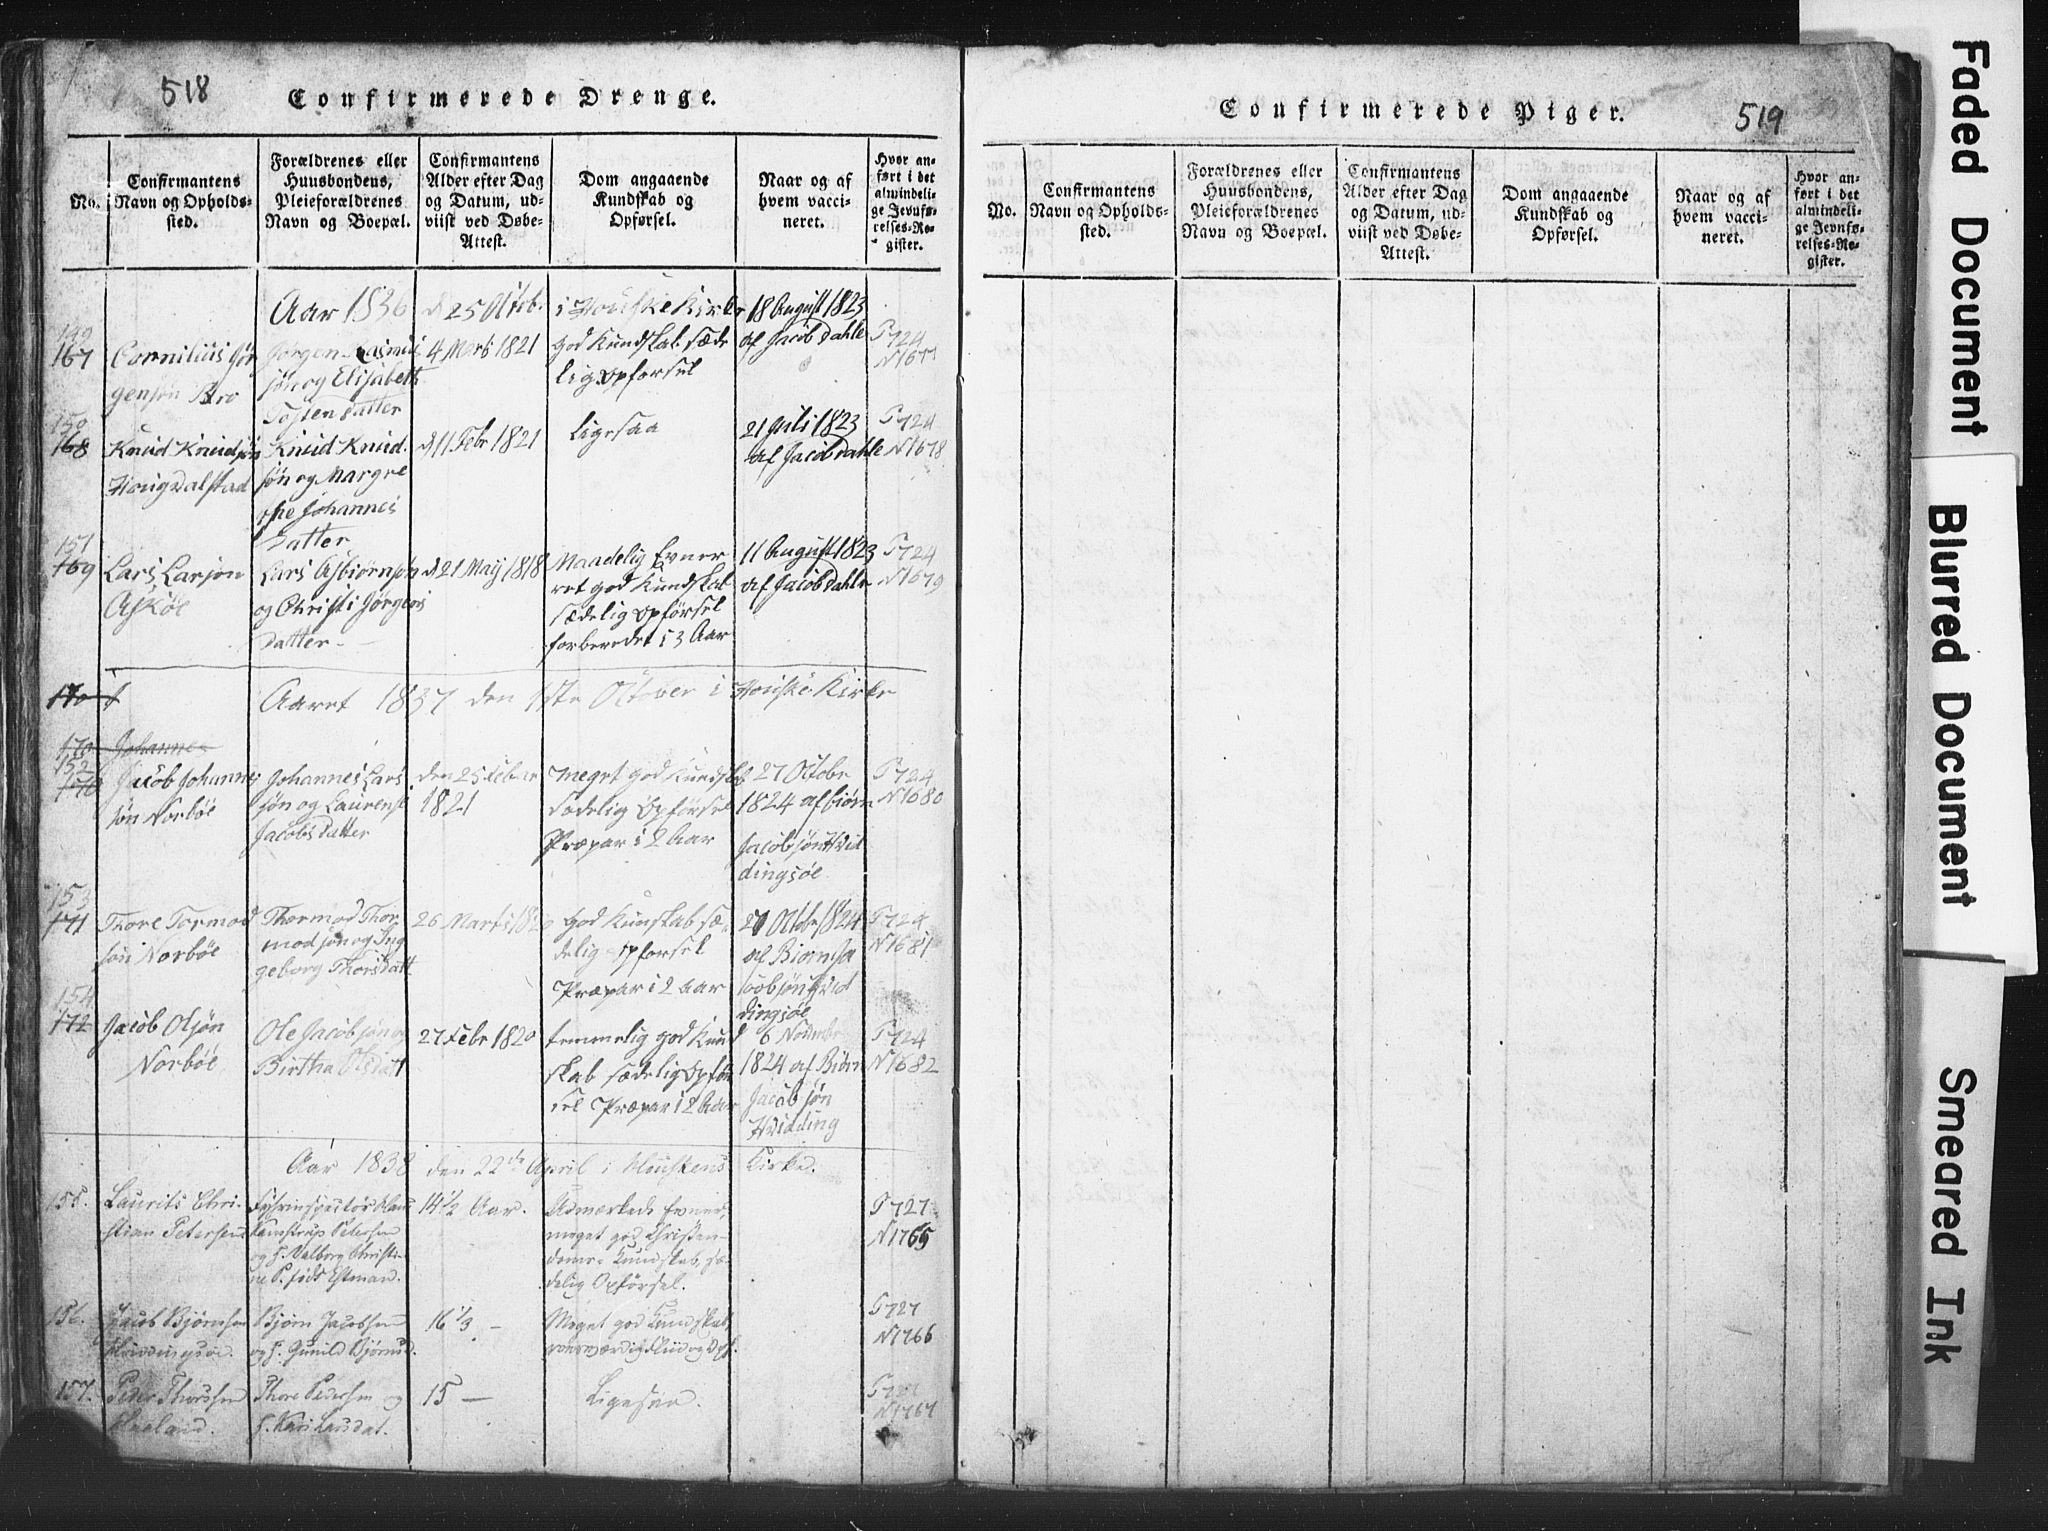 518
Confirmerede Drenge.
No.
Confirmantens
Navn og Opholds-
sted.
Forældrenes eller
Huusbondens,
Pleieforældrenes
Navn og Boepæl.
Confirmantens
Alder efter Dag
og Datum, ud-
viist ved Døbe-
Attest.
Dom angaaende
Kundskab og
Opførsel.
Naar og af
hvem vacci-
neret.
Hvor an-
ført i det
almindeli-
ge Jevnfø-
relses-Re-
gister.
Aar 1836 d 25 Octob. i Houske Kirke
149
167
Cornilius Jør
gensøn Bro
Jørgen Rasmus
søn og Elisabeth
Tosten Datter
4 Marts 1821
god Kundskab sæde
lig opførsel
18 August 1823
af Jacob Dahle
P 724
N 1677
150
168
Knud Knudsøn
Hougdalstad
Knud Knud
søn og Margre
the Johannes
Datter
d 11 Febr 1821
Ligesaa
21 Juli 1823
af Jacob Dahle
P 724
N 1678
151
169
Lars Larsøn
Askøe
Lars Asbiørnsøn
og Christi Jørgens
Datter
d 21 Maij 1818
Maadelig Evner
ret god Kundskab
sædelig opførsel
forberedet i 3 Aar
11 August 1823
af Jacob Dahle
P 724
N 1679
170
Aaret 1837 den 1ste October i Houske Kirke
170 Johannes
152
170
Jacob Johannes
søn Norbøe
Johannes Lars
søn og Laurense
Jacobsdatter
den 25 Febr
1821
Meget god Kundskab
sædelig Opførsel
Præpar i 2 Aar
27 Octobr
1824 af Biørn
Jacobsøn Hvid
dingsøe
P 724
N 1680
153
171
Thore Tormod
søn Norbøe
Thormod Thor
modsøn og Ing
geborg Thorsdatt
26 Marts
God Kunskab sæ
delig opførsel
Præpar i 2 Aar
27 Octobr 1824
af Biørn Ja
cobsøn Hvid
dingsøe
P 724
N 1681
154
172
Jacob Olsøn
Norbøe
Ole Jacobsøn og
Birtha Olsdatt
27 Febr 1820
temmelig god Kund
skab sædelig opfør
sel Præpar i 2 Aar
6 Novembr
1824 af Biørn
Jacobsøn
Hvidding
P 724
N 1682
Aar 1838 den 22de April i Houskens Kirke.
155.
Laurits Chri-
stian Petersen
Fyhrinspectør Claus
Kamstrup Petersen
og H. Valborg Christi-
ne P. føds Estman.
14 1/2 Aar.
Udmærkede Evner,
meget god Christen-
doms-Kundskab, sæ-
delig Opførsel.
P 727
N 1765
156.
Jacob Bjørnsen
Hviddingsøe.
Bjørn Jacobsen
og H. Gunild Bjørnsd.
16 1/3 —
Meget god Kundskab,
P 727
N 1766
157.
Peder Thorsen
Thore Pedersen og
H. Kari Larsdat.
15 —
Ligesaa.
P 727
N 1767
Confirmerede Piger.
519
No.
Confirmantens
Navn og Opholds-
sted.
Forældrenes eller
Huusbondens,
Pleieforældrenes
Navn og Boepæl.
Confirmantens
Alder efter Dag
og Datum, ud-
viist ved Døbe-
Attest.
Dom angaaende
Kundskab og
Opførsel.
Naar og af
hvem vacci-
neret.
Hvor an-
ført i det
almindeli-
ge Jevnfø-
relses-Re-
gister.
Faded Document
Blurred Document
Smeared Ink